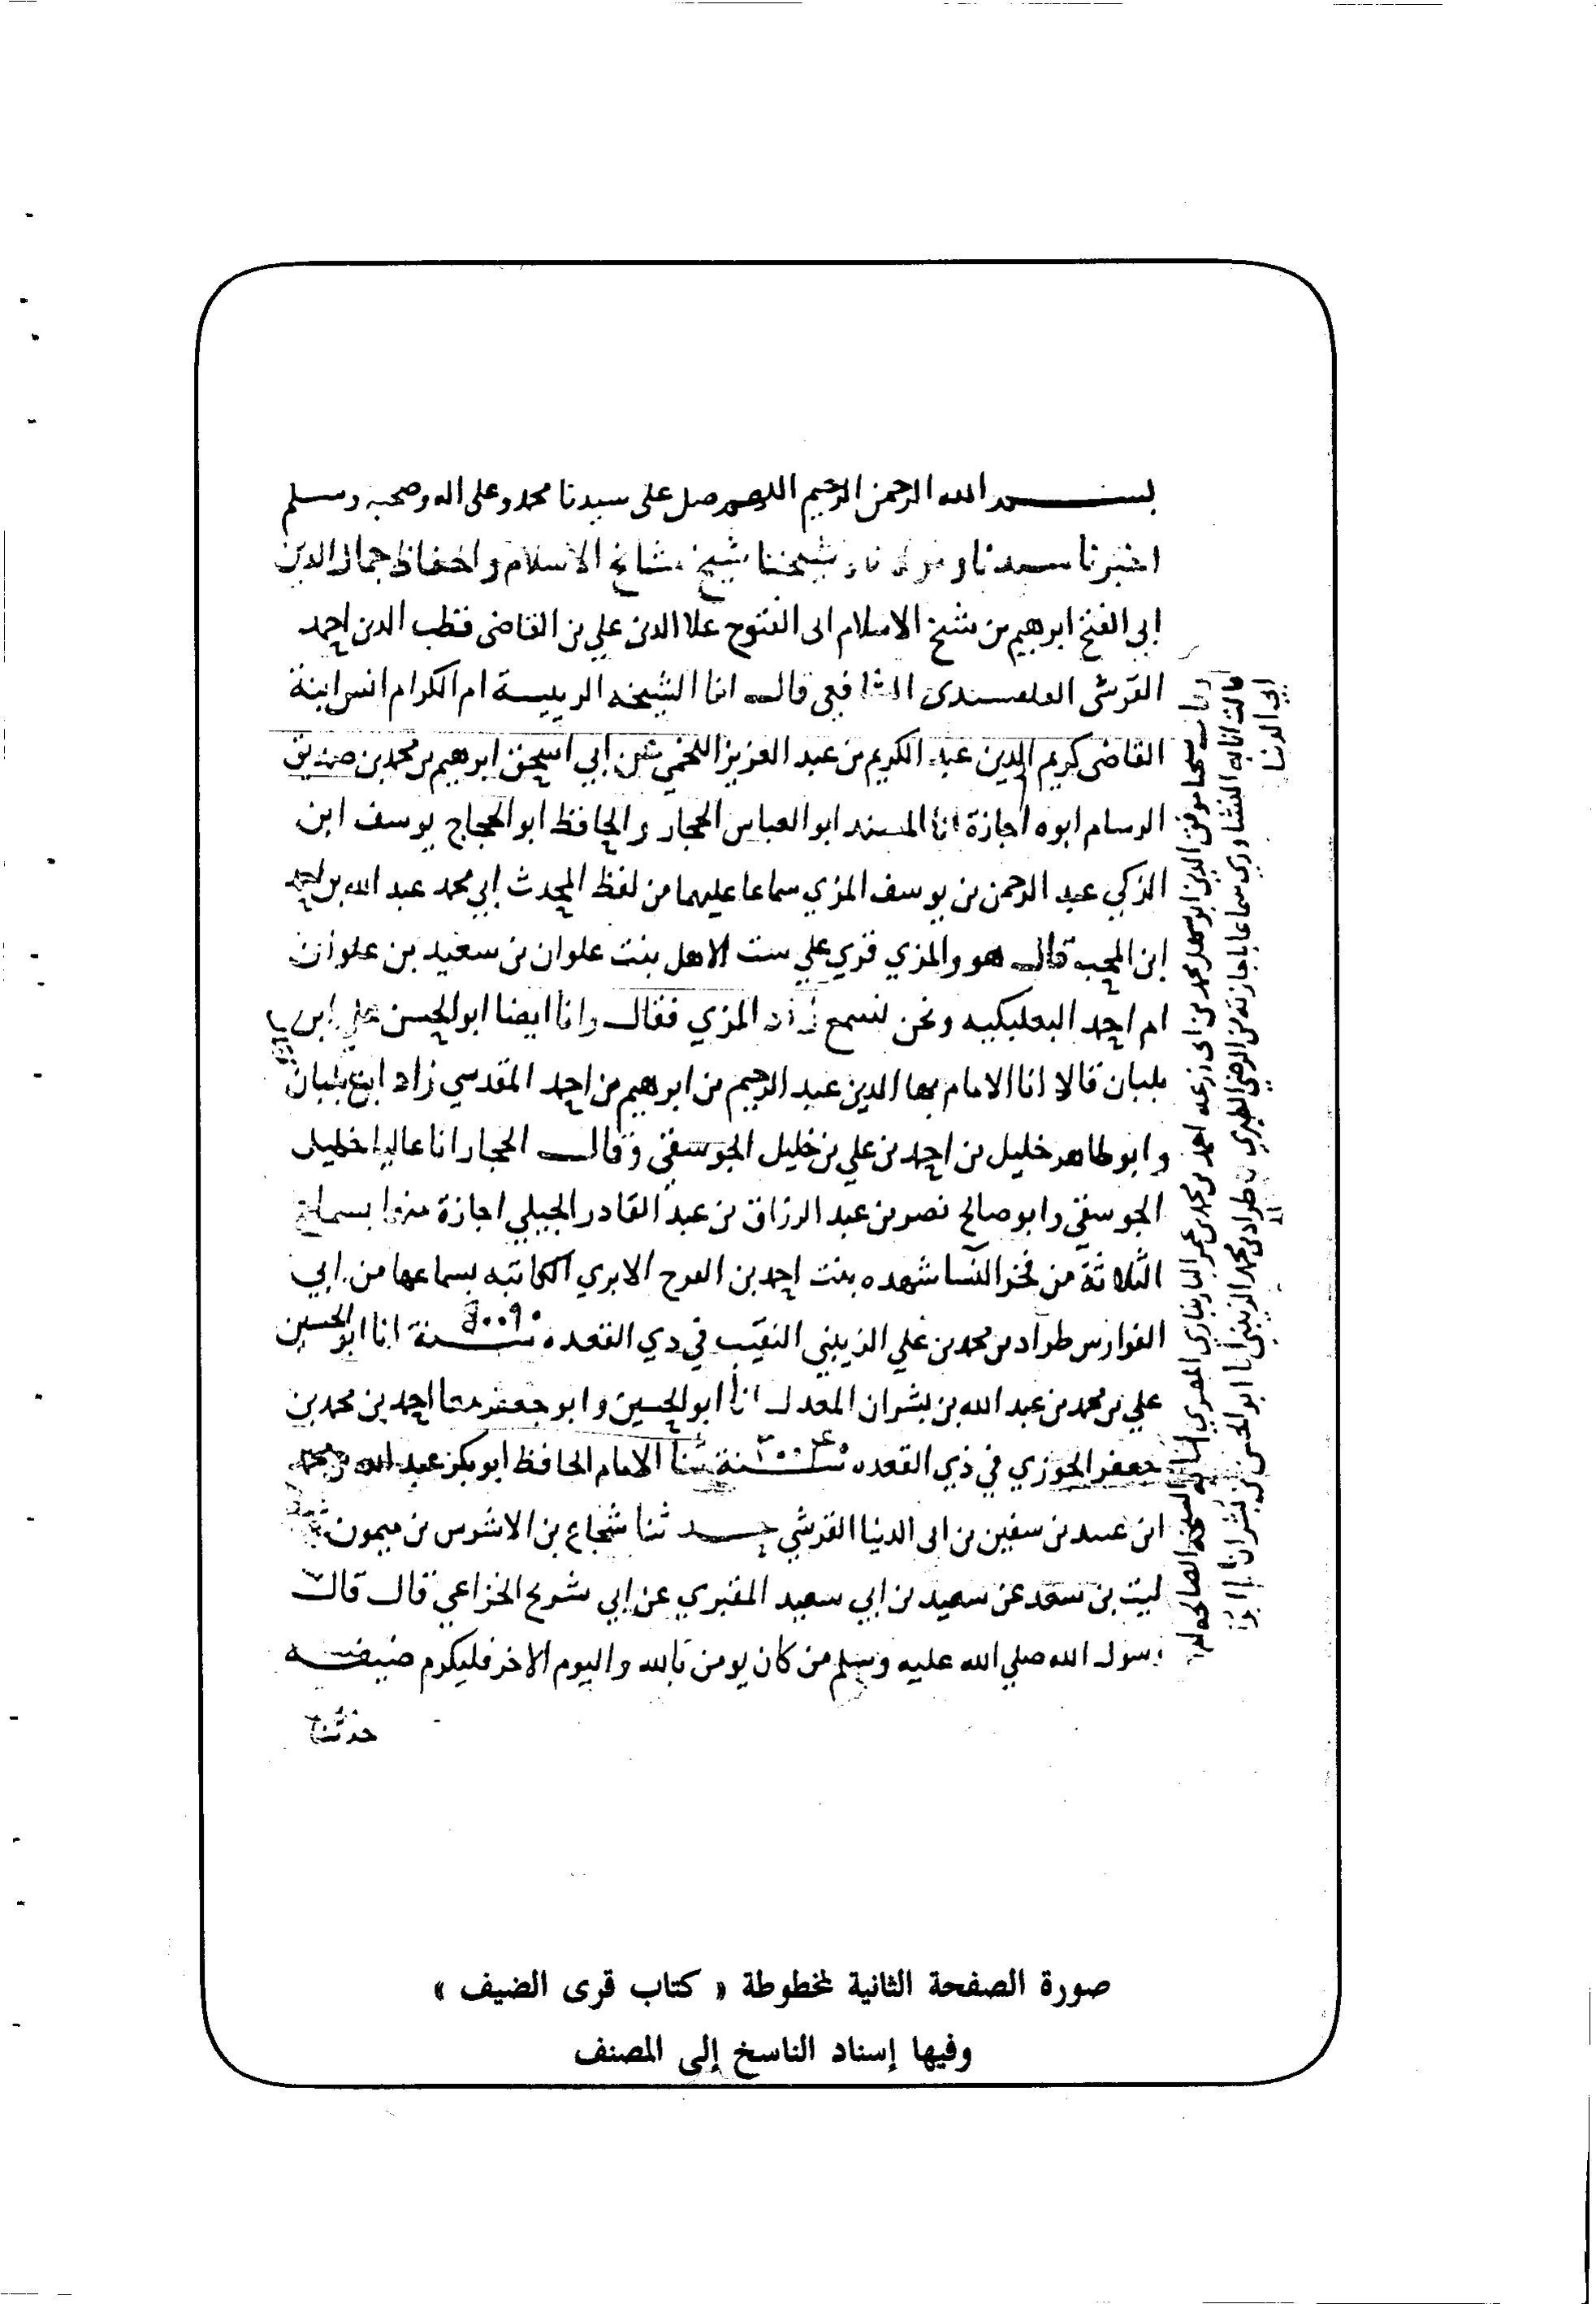 بسم الله الرحمن الرحيم اللهم صل على سيدنا محمد وعلى اله وصحبه وسلم
اخبرنا سيدنا و شيخنا شيخ مشائخ الاسلام والحفاظ جمال الدين
ابي الفتح ابرهيم بن شيخ الاسلام ابى الفتوح علا الدين علي بن القاضى قطب الدين احمد
القرشى القلقسندى الشافعى قال انا الشيخة الرييسة ام الكرام انس ابنة
القاضى كريم الدين عبد الكريم بن عبد العزيز اللخمي عن ابي اسحق ابرهيم بن محمد بن صديق
الرسام ابوه اجازة انا المسند ابو العباس الحجار والحافظ ابو الحجاج يوسف ابن
الزكي عبد الرحمن بن يوسف المزي سماعا عليهما من لفظ المحدث ابي محمد عبد الله بن احمد
ابن المحب قال هو والمزي قري علي ست الاهل بنت علوان بن سعيد بن علوان
ام احمد البعليكيه ونحن نسمع زاد المزي فقال وانا ايضا ابو الحسن علي ابن
بلبان قالا انا الامام بها الدين عبد الرحيم بن ابرهيم بن احمد المقدسي زاد ابن بلبان
وابو طاهر خليل بن احمد بن علي بن خليل الجوسقي وقال الحجار انا عاليا خليل
الجوسقي وابو صالح نصر بن عبد الرزاق بن عبد القادر الجيلي اجازة منهما بسماع
الثلاثة من فخر النسا شهده بنت احمد بن الفرح الابري الكاتبه بسماعها من ابي
الفوارس طراد بن محمد بن علي الزينبي النقيب في دي القعده سنة انا ابو الحسين
علي بن محمد بن عبد الله بن بشران المعدل انا ابو الحسين وابو جعفر معا احمد بن محمد بن
جعفر الجوزي في ذي القعده سنة ثنا الامام الحافظ ابو بكر عبد الله بن محمد
ابن عبيد بن سفين بن ابى الدنيا القرشي حد ثنا شجاع بن الاشرس بن ميمون
ليث بن سعد عن سعيد بن ابي سعيد المقبري عن ابي شريح الخزاعي قال قال
رسول الله صلي الله عليه وسلم من كان يومن بالله واليوم الاخر فليكرم ضيفه
حدثنا
موفق الدين ابو سهل محمد بن ابى زرعه احمد بن محمد بن عمر البارنباري المصري
قالت انا به النشاوري سماعا باجازته من الرضي الطبري طراد بن محمد الزينبي انا ابو الحسن بن بشران انا ابو
ابي الدنيا
صورة الصفحة الثانية لمخطوطة « كتاب قرى الضيف »
وفيها إسناد الناسخ إلى المصنف